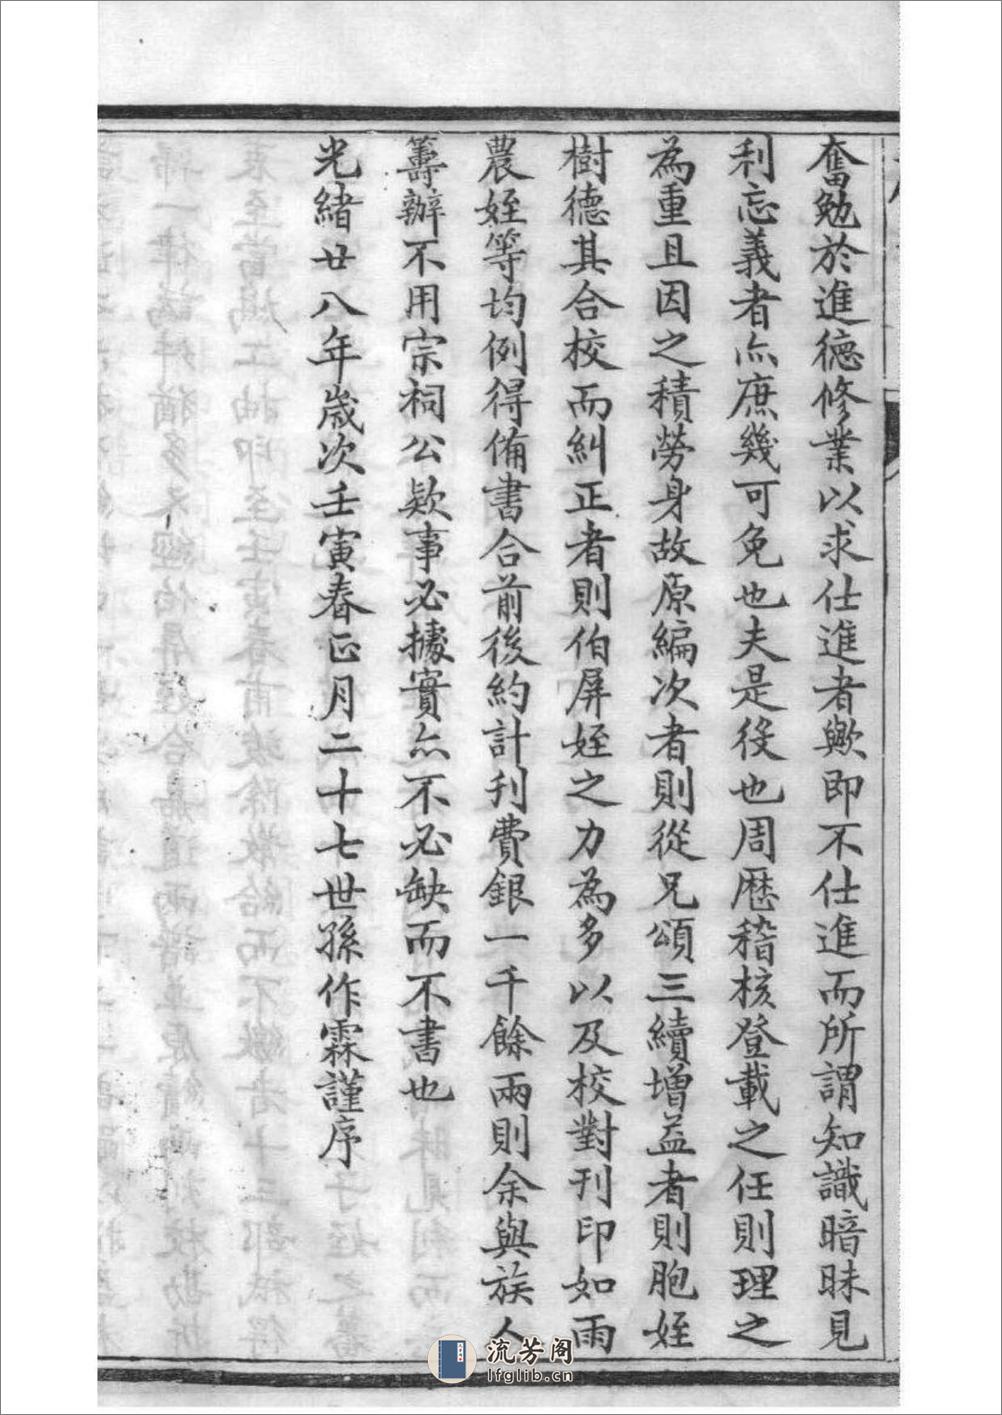 奮勉於進德修業以求仕進者歟即不仕進而所謂知識暗昧見
利忘義者亦庶幾可免也夫是役也周歷稽核登載之任則理之
為重且因之積勞身故原編次者則從兄頌三續增益者則胞姪
樹德其合校而糾正者則伯屏姪之力為多以及校對刊印如雨
農姪等均例得備書合前後約計刊費銀一千餘兩則余與族人
籌辦不用宗祠公欵事必據實亦不必缺而不書也
光緒廿八年歲次壬寅春正月二十七世孫作霖謹序
流芳阁
lfglib.cn